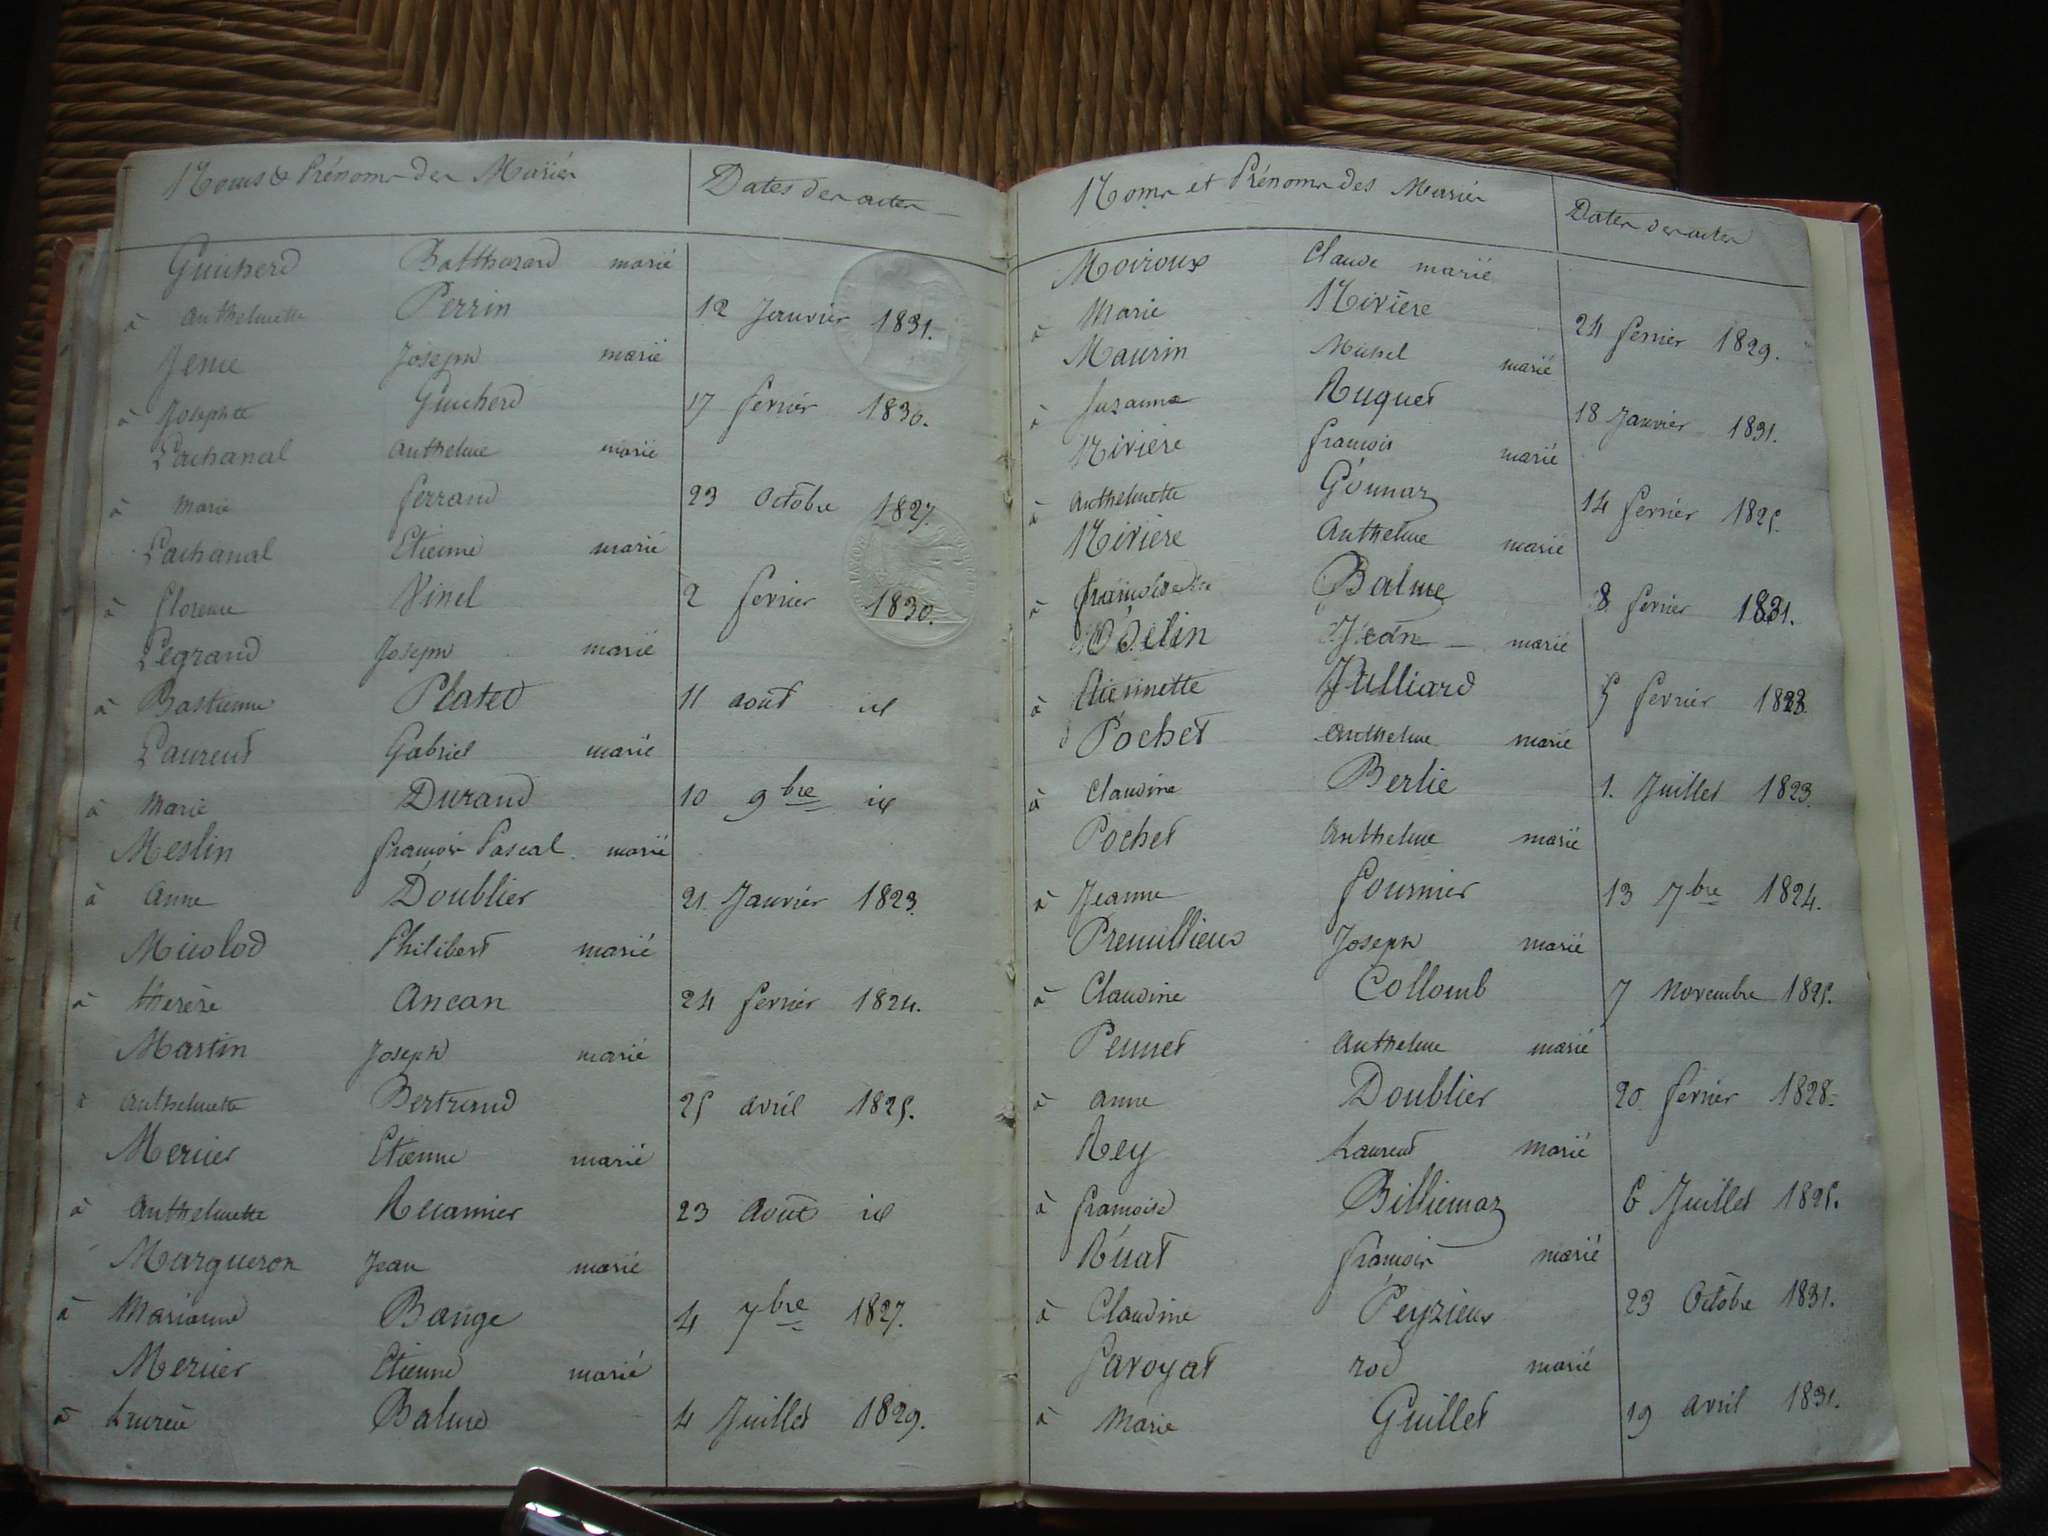 Noms & Prénoms des Mariés
Dates des actes
Guicherd Balthazard marié
à Anthelmette Perrin 12 Janvier 1831.
Jeme Joseph marié
à Josephte Guicherd 17 fevrier 1830.
Lachanal Anthelme marié
à Marie ferrand 23 Octobre 1827.
Lachanal Etienne marié
à florence Vinel 2 fevrier 1830.
Legrand Joseph marié
à Bastienne Plated 11 août id
Laurent Gabriel marié
à Marie Durand 10 9bre id
Meslin françois Pascal marié
à Anne Doublier 21 Janvier 1823.
Micolod Philibert marié
à therèse Ancan 24 fevrier 1824.
Martin Joseph marié
à Anthelmette Bertrand 25 avril 1825.
Mercier Etienne marié
à Anthelmette Recamier 23 Août id
Margueron Jean marié
à Marianne Bange 4 7bre 1827.
Mercier Etienne marié
à Balme 4 Juillet 1829.
Noms et Prénoms des Mariés
Dates des actes
Moiroux Claude marié
à Marie Riviere 24 fevrier 1829.
Maurin Michel marié
à Suzanne Ruguet 18 Janvier 1831.
Riviere françois marié
à Anthelmette Gonnaz 14 fevrier 1825.
Riviere Anthelme marié
à françoise Balme 8 fevrier 1831.
Odelin Jean marié
à Etiennette Julliard 5 fevrier
Pochet Anthelme marié
à Claudine Berlie 1. Juillet 1823.
Pochet Anthelme marié
à Jeanne fournier 13 7bre 1824.
Premillieux Joseph marié
à Claudine Collomb 7 Novembre 1825.
Pennet Anthelme marié
à Anne Doublier 20 fevrier 1828.
Rey Laurent marié
à françoise Billiemaz 6 Juillet 1825.
Ruat françois marié
à Claudine Peyzieux 23 Octobre 1831.
Savoyat marié
à Marie Guillet 19 avril 1831.